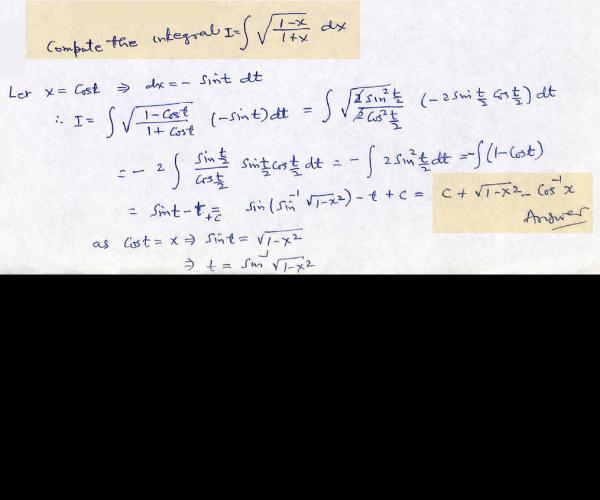 Compute the integral I = ∫ √((1-x)/(1+x)) dx
Let x = Cost ⇒ dx = - Sint dt
∴ I = ∫ √((1-Cost)/(1+Cost)) (-Sint) dt = ∫ √((2 Sin² t/2)/(2 Cos² t/2)) (-2 Sin t/2 Cos t/2) dt
= - 2 ∫ (Sin t/2)/(Cos t/2) Sin t/2 Cos t/2 dt = - ∫ 2 Sin² t/2 dt = -∫(1-Cost)
= Sint - t + c = Sin(Sin⁻¹ √1-x²) - t + c = C + √1-x² - Cos⁻¹ x
as Cost = x ⇒ Sint = √1-x² Answer
⇒ t = Sin⁻¹ √1-x²